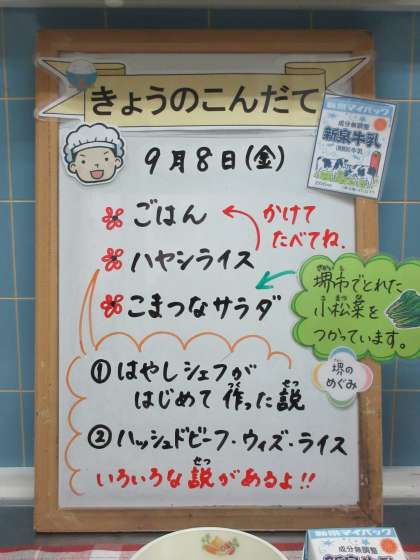 きょうのこんだて
9月8日(金)
新泉マイパック
成分無調整
新泉牛乳
ごはん
かけて
たべてね.
ハヤシライス
こまつなサラダ
堺市でとれた
小松菜を
つかっています。
堺の
めぐみ
①はやしシェフが
はじめて作った説
②ハッシュドビーフ・ウィズ・ライス
いろいろな説があるよ!!
新泉マイパック
成分無調整